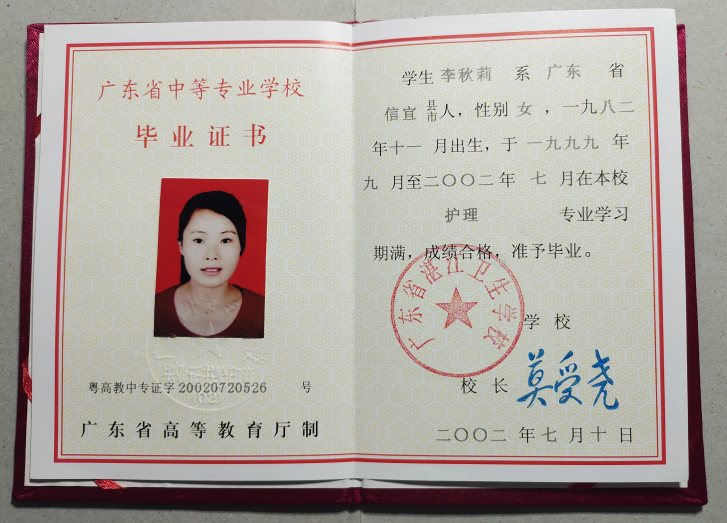 广东省中等专业学校
毕业证书
粤高教中专证字20020720526 号
广东省高等教育厅制
学生 李秋莉 系 广东 省
信宜 县市人，性别 女 ，一九八二
年十一月出生，于 一九九九 年
九 月至二〇〇二年 七 月在本校
护理 专业学习
期满，成绩合格，准予毕业。
广东省湛江卫生学校
学 校
校 长 莫受尧
二〇〇二 年 七 月 十 日